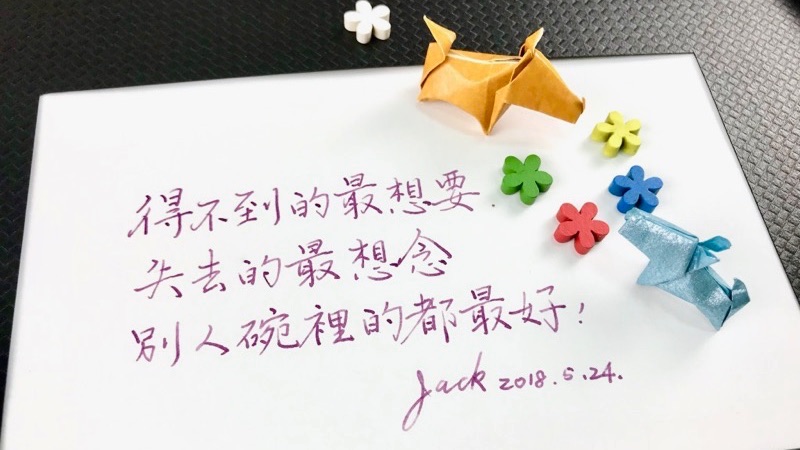 得不到的最想要.
失去的最想念
別人碗裡的都最好!
Jack 2018.5.24.